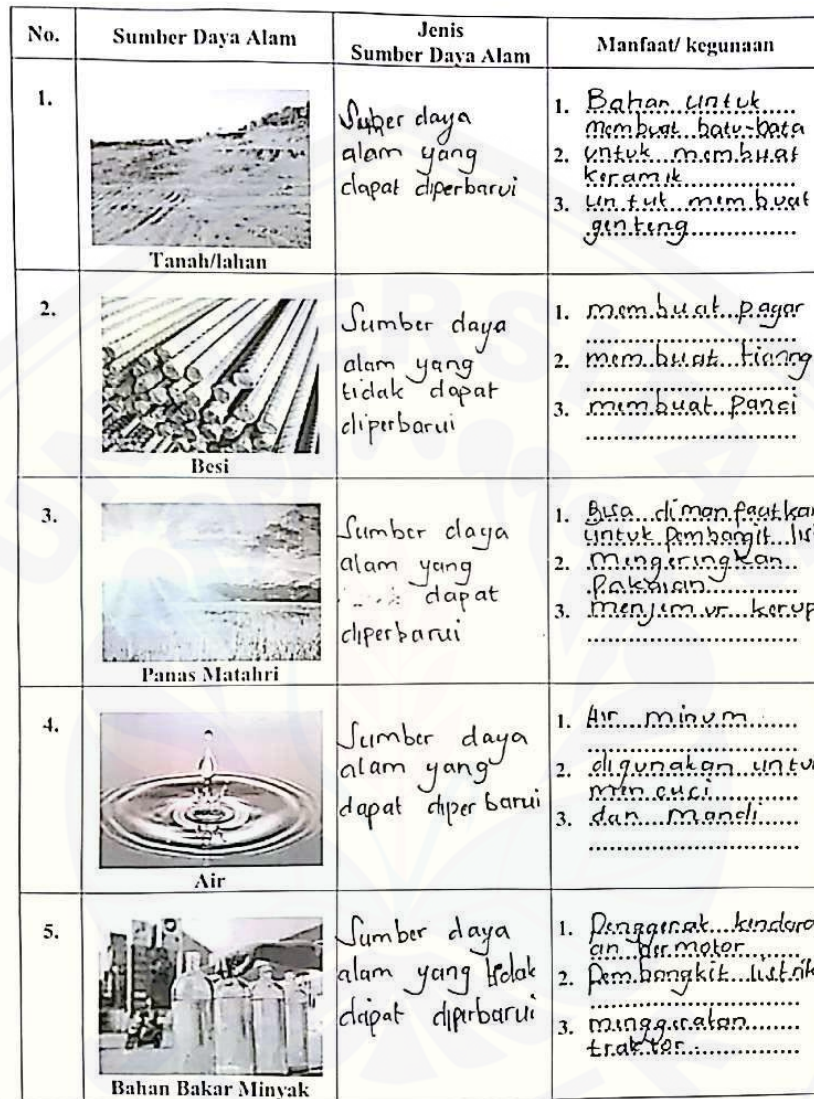 No.
Sumber Daya Alam
Jenis
Sumber Daya Alam
Manfaat/ kegunaan
1.
Tanah/lahan
Suber daya
alam yang
dapat diperbarui
1. Bahan untuk
membuat batu-bata
2. untuk membuat
keramik
3. untuk membuat
genteng
2.
Besi
Sumber daya
alam yang
tidak dapat
diperbarui
1. membuat pagar
2. membuat tianng
3. membuat panci
3.
Panas Matahri
Sumber daya
alam yang
dapat
diperbarui
1. Bisa dimanfaatkan
untuk pembangit lis
2. mengeringkan
pakaian
3. menjemur kerup
4.
Air
Sumber daya
alam yang
dapat diperbarui
1. Air minum
2. digunakan untuk
mencuci
3. dan mandi
5.
Bahan Bakar Minyak
Sumber daya
alam yang tidak
dapat diperbarui
1. Penggerak kendara
an bermotor
2. Pembangkit listrik
3. menggerakan
traktor